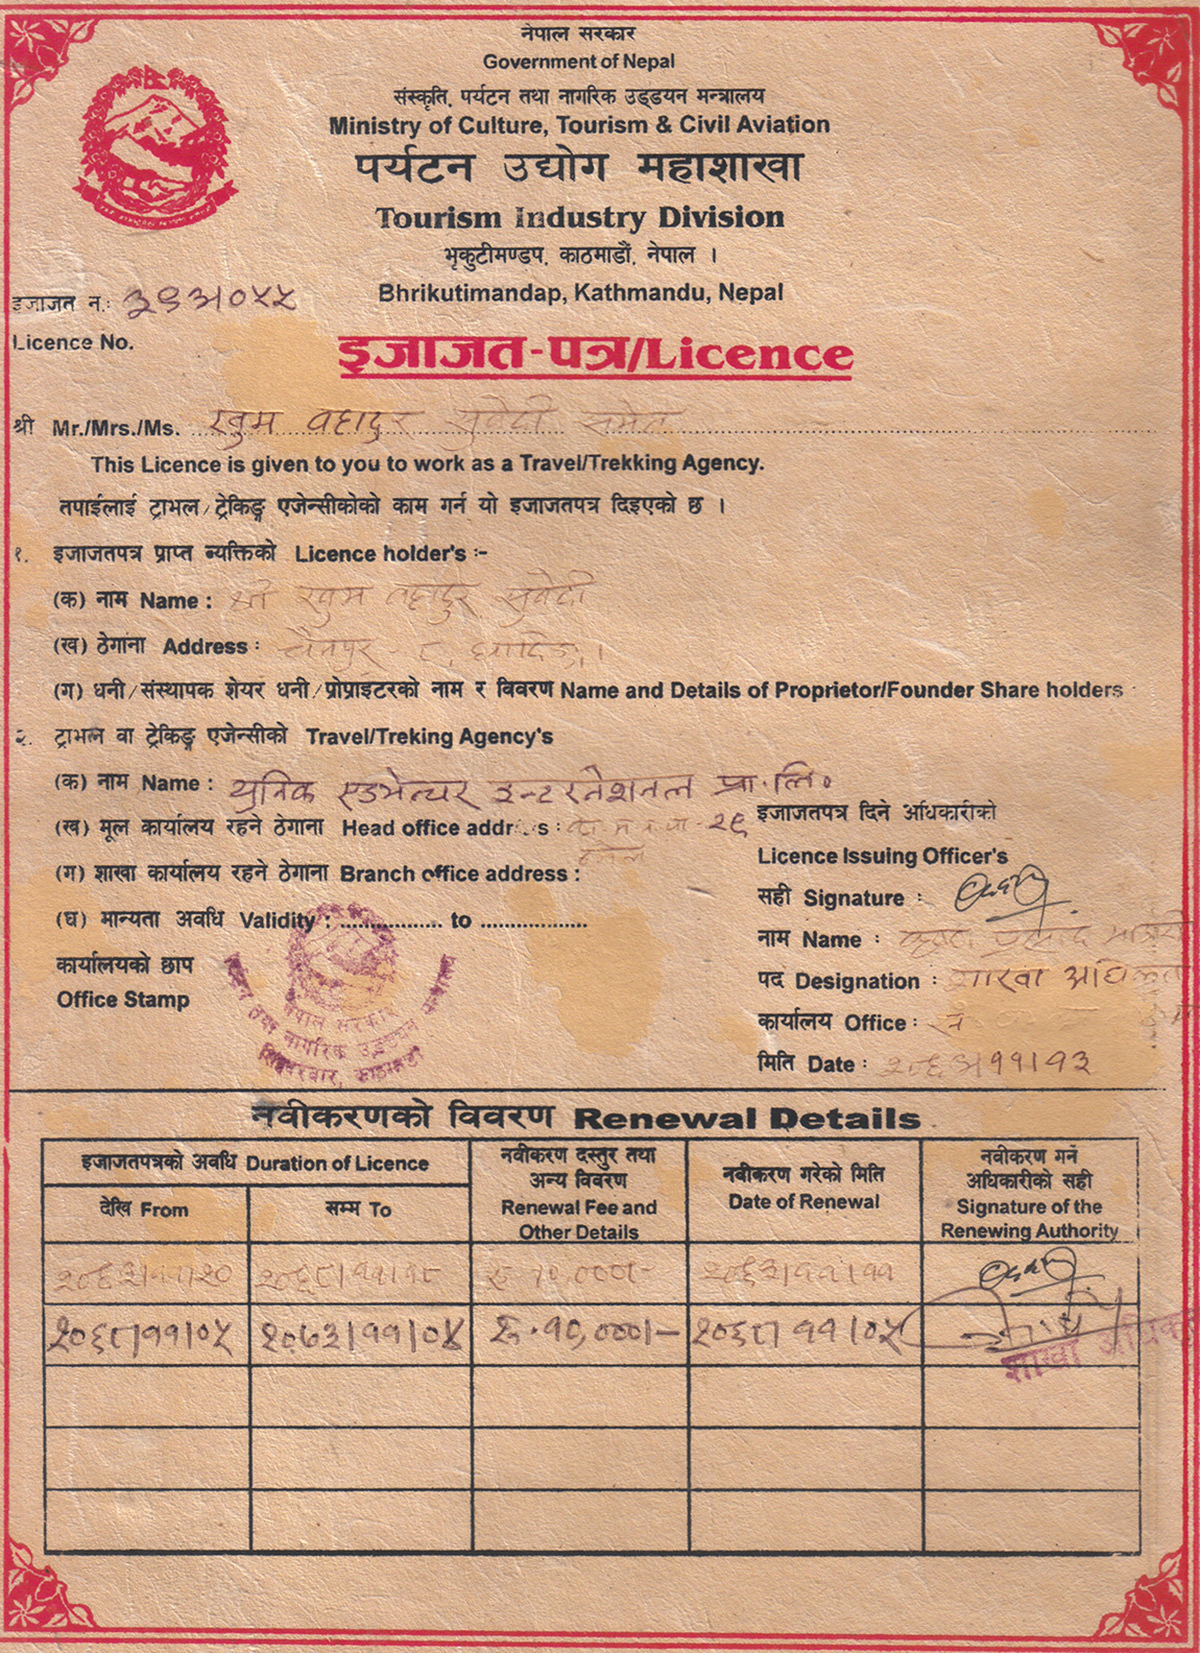 नेपाल सरकार
Government of Nepal
संस्कृति, पर्यटन तथा नागरिक उड्डयन मन्त्रालय
Ministry of Culture, Tourism & Civil Aviation
पर्यटन उद्योग महाशाखा
Tourism Industry Division
भृकुटीमण्डप, काठमाडौं, नेपाल ।
Bhrikutimandap, Kathmandu, Nepal
इजाजत न.:
Licence No.
इजाजत-पत्र/Licence
श्री Mr./Mrs./Ms. खुम बहादुर सुवेदी समेत
This Licence is given to you to work as a Travel/Trekking Agency.
तपाईलाई ट्राभल/ट्रेकिङ्ग एजेन्सीकोको काम गर्न यो इजाजतपत्र दिइएको छ ।
१. इजाजतपत्र प्राप्त ब्यक्तिको Licence holder's :-
(क) नाम Name : श्री खुम बहादुर सुवेदी
(ख) ठेगाना Address : धादिङ्ग ।
(ग) धनी/संस्थापक शेयर धनी/प्रोप्राइटरको नाम र विवरण Name and Details of Proprietor/Founder Share holders :
२. ट्राभल वा ट्रेकिङ्ग एजेन्सीको Travel/Treking Agency's
(क) नाम Name : युनिक एडभेन्चर इन्टरनेशनल प्रा. लि.
(ख) मूल कार्यालय रहने ठेगाना Head office address : २९
(ग) शाखा कार्यालय रहने ठेगाना Branch office address :
(घ) मान्यता अवधि Validity : .................. to ..................
कार्यालयको छाप
Office Stamp
नेपाल सरकार
तथा नागरिक उड्डयन
इजाजतपत्र दिने अधिकारीको
Licence Issuing Officer's
सही Signature :
नाम Name :
पद Designation : शाखा अधिकृत
कार्यालय Office :
मिति Date : २०६३।११।१३
नवीकरणको विवरण Renewal Details
इजाजतपत्रको अवधि Duration of Licence
देखि From
सम्म To
नवीकरण दस्तुर तथा
अन्य विवरण
Renewal Fee and
Other Details
नवीकरण गरेको मिति
Date of Renewal
नवीकरण गर्न
अधिकारीको सही
Signature of the
Renewing Authority
रु १०,०००।-
२०६८।११।०५ २०७३।११।०४ रु. १०,०००।- २०६८।११।०५
शाखा अधिकृत